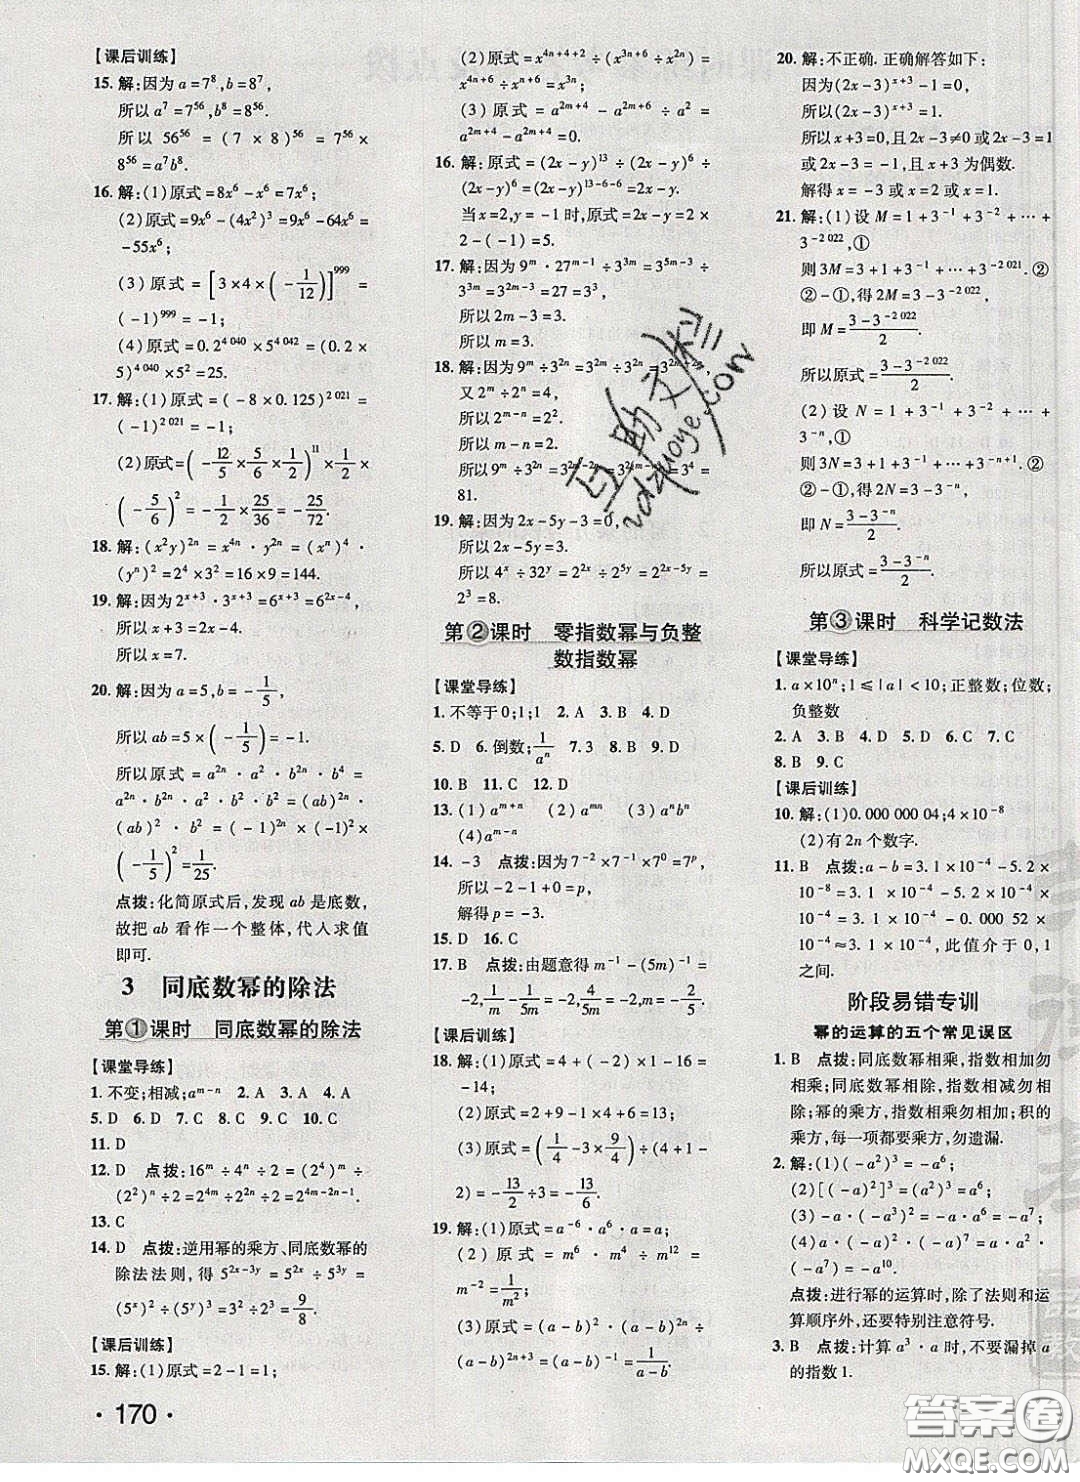 【课后训练】
15. 解:因为 a=7⁸,b=8⁷,
所以 a⁷=7⁵⁶,b⁸=8⁵⁶,
所以 56⁵⁶=(7×8)⁵⁶=7⁵⁶×
8⁵⁶=a⁷b⁸.
16. 解:(1)原式=8x⁶-x⁶=7x⁶;
(2)原式=9x⁶-(4x²)³=9x⁶-64x⁶=
-55x⁶;
(3)原式=[3×4×(-1/12)]⁹⁹⁹=
(-1)⁹⁹⁹=-1;
(4)原式=0.2^(4 040)×5^(4 042)=(0.2×
5)^(4 040)×5²=25.
17. 解:(1)原式=(-8×0.125)^(2 021)=
(-1)^(2 021)=-1;
(2)原式=(-12/5×5/6×1/2)¹¹×1/2×
(-5/6)²=(-1)×1/2×25/36=-25/72.
18. 解:(x²y)²ⁿ=x⁴ⁿ·y²ⁿ=(xⁿ)⁴·
(yⁿ)²=2⁴×3²=16×9=144.
19. 解:因为2^(x+3)·3^(x+3)=6^(x+3)=6^(2x-4),
所以 x+3=2x-4.
所以 x=7.
20. 解:因为 a=5,b=-1/5,
所以 ab=5×(-1/5)=-1.
所以原式=a²ⁿ·a²·b²ⁿ·b⁴=
a²ⁿ·b²ⁿ·a²·b²·b²=(ab)²ⁿ·
(ab)²·b²=(-1)²ⁿ×(-1)²×
(-1/5)²=1×1×1/25=1/25.
点拨:化简原式后,发现 ab 是底数,
故把 ab 看作一个整体,代入求值
即可.
3 同底数幂的除法
第①课时 同底数幂的除法
【课堂导练】
1. 不变;相减;a^(m-n) 2. A 3. A 4. A
5. D 6. D 7. D 8. C 9. D 10. C
11. D
12. D 点拨:16ᵐ÷4ⁿ÷2=(2⁴)ᵐ÷
(2²)ⁿ÷2=2⁴ᵐ÷2²ⁿ÷2=2^(4m-2n-1).
13. C
14. D 点拨:逆用幂的乘方、同底数幂的
除法法则,得 5^(2x-3y)=5^(2x)÷5^(3y)=
(5ˣ)²÷(5ʸ)³=3²÷2³=9/8.
【课后训练】
15. 解:(1)原式=2-1=1;
·170·
(2)原式=x^(4n+4+2)÷(x^(3n+6)÷xⁿ)=
x^(4n+6)÷x^(2n+6)=x²ⁿ;
(3)原式=a^(2m+4)-a^(2m+6)÷a²=
a^(2m+4)-a^(2m+4)=0.
16. 解:原式=(2x-y)¹³÷(2x-y)⁶÷
(2x-y)⁶=(2x-y)^(13-6-6)=2x-y.
当x=2,y=-1时,原式=2x-y=2×
2-(-1)=5.
17. 解:因为 9ᵐ·27^(m-1)÷3³ᵐ=3²ᵐ·3^(3m-3)÷
3³ᵐ=3^(2m-3)=27=3³,
所以 2m-3=3.
所以 m=3.
18. 解:因为9ᵐ÷3²ⁿ=3²ᵐ÷3²ⁿ=3^(2m-2n),
又 2ᵐ÷2ⁿ=4,
所以 2^(m-n)=2².
所以 m-n=2.
所以9ᵐ÷3²ⁿ=3^(2m-2n)=3^(2(m-n))=3⁴=
81.
19. 解:因为 2x-5y-3=0,
所以 2x-5y=3.
所以 4ˣ÷32ʸ=2²ˣ÷2⁵ʸ=2^(2x-5y)=
2³=8.
第②课时 零指数幂与负整
数指数幂
【课堂导练】
1. 不等于0;1;1 2. A 3. B 4. D
5. D 6. 倒数;1/aⁿ 7. 3 8. B 9. D
10. B 11. C 12. D
13. (1)a^(m+n) (2)a^(mn) (3)aⁿbⁿ
(4)a^(m-n)
14. -3 点拨:因为 7⁻²×7⁻¹×7⁰=7ᵖ,
所以 -2-1+0=p,
解得 p=-3.
15. D 16. C
17. B 点拨:由题意得 m⁻¹-(5m)⁻¹=
-2,1/m-1/5m=-2,4/5m=-2,m=-2/5.
【课后训练】
18. 解:(1)原式=4+(-2)×1-16=
-14;
(2)原式=2+9-1×4+6=13;
(3)原式=(1/4-3×9/4)÷(4+1-
2)=-13/2÷3=-13/6.
19. 解:(1)原式=a⁻⁶·a⁶·a=a;
(2)原式=m⁶·m⁴÷m¹²=
m⁻²=1/m²;
(3)原式=(a-b)²ⁿ÷(a-b)⁻³=
(a-b)^(2n+3).
20. 解:不正确. 正确解答如下:
因为(2x-3)^(x+3)-1=0,
所以(2x-3)^(x+3)=1.
所以 x+3=0,且 2x-3≠0 或2x-3=1
或 2x-3=-1,且 x+3 为偶数.
解得 x=-3 或 x=2 或 x=1.
21. 解:(1)设 M=1+3⁻¹+3⁻²+…+
3^(-2 022),①
则 3M=3+1+3⁻¹+…+3^(-2 021).②
②-①,得 2M=3-3^(-2 022),
即 M=(3-3^(-2 022))/2.
所以原式=(3-3^(-2 022))/2.
(2)设 N=1+3⁻¹+3⁻²+…+
3⁻ⁿ,①
则 3N=3+1+3⁻¹+…+3^(-n+1).②
②-①,得 2N=3-3⁻ⁿ,
即 N=(3-3⁻ⁿ)/2.
所以原式=(3-3⁻ⁿ)/2.
第③课时 科学记数法
【课堂导练】
1. a×10ⁿ;1≤|a|<10;正整数;位数;
负整数
2. A 3. B 4. D 5. D 6. C 7. C
8. B 9. C
【课后训练】
10. 解:(1)0.000 000 04;4×10⁻⁸
(2)有 2n 个数字.
11. B 点拨:a-b=3.1×10⁻⁴-5.2×
10⁻⁸=3.1×10⁻⁴-5.2×10⁻⁴×
10⁻⁴=3.1×10⁻⁴-0.000 52×
10⁻⁴≈3.099×10⁻⁴,此值介于 0,1
之间.
阶段易错专训
幂的运算的五个常见误区
1. B 点拨:同底数幂相乘,指数相加勿
相乘;同底数幂相除,指数相减勿相
除;幂的乘方,指数相乘勿相加;积的
乘方,每一项都要乘方,勿遗漏.
2. 解:(1)(-a²)³=-a⁶;
(2)[(-a)²]³=(a²)³=a⁶;
(3)-a·(-a²)³=-a·a⁶=-a⁷;
(4)a·(-a)²·(-a)⁷=a·a²·
(-a⁷)=-a¹⁰.
点拨:进行幂的运算时,除了法则和运
算顺序外,还要特别注意符号.
3. B 点拨:计算 a³·a 时,不要漏掉 a
的指数 1.
互助文栏
答案圈
MXQE.COM